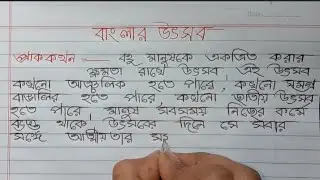 বাংলার উৎসব
প্রাককথন — বহু মানুষকে একত্রিত করার
ক্ষমতা রাখে উৎসব। এই উৎসব
কখনো আঞ্চলিক হতে পারে, কখনো সমগ্র
বাঙালির হতে পারে, কখনো জাতীয় উৎসব
হতে পারে। মানুষ সবসময় নিজের কর্মে
ব্যস্ত থাকে। উৎসবের দিনে সে সবার
সঙ্গে আত্মীয়তার